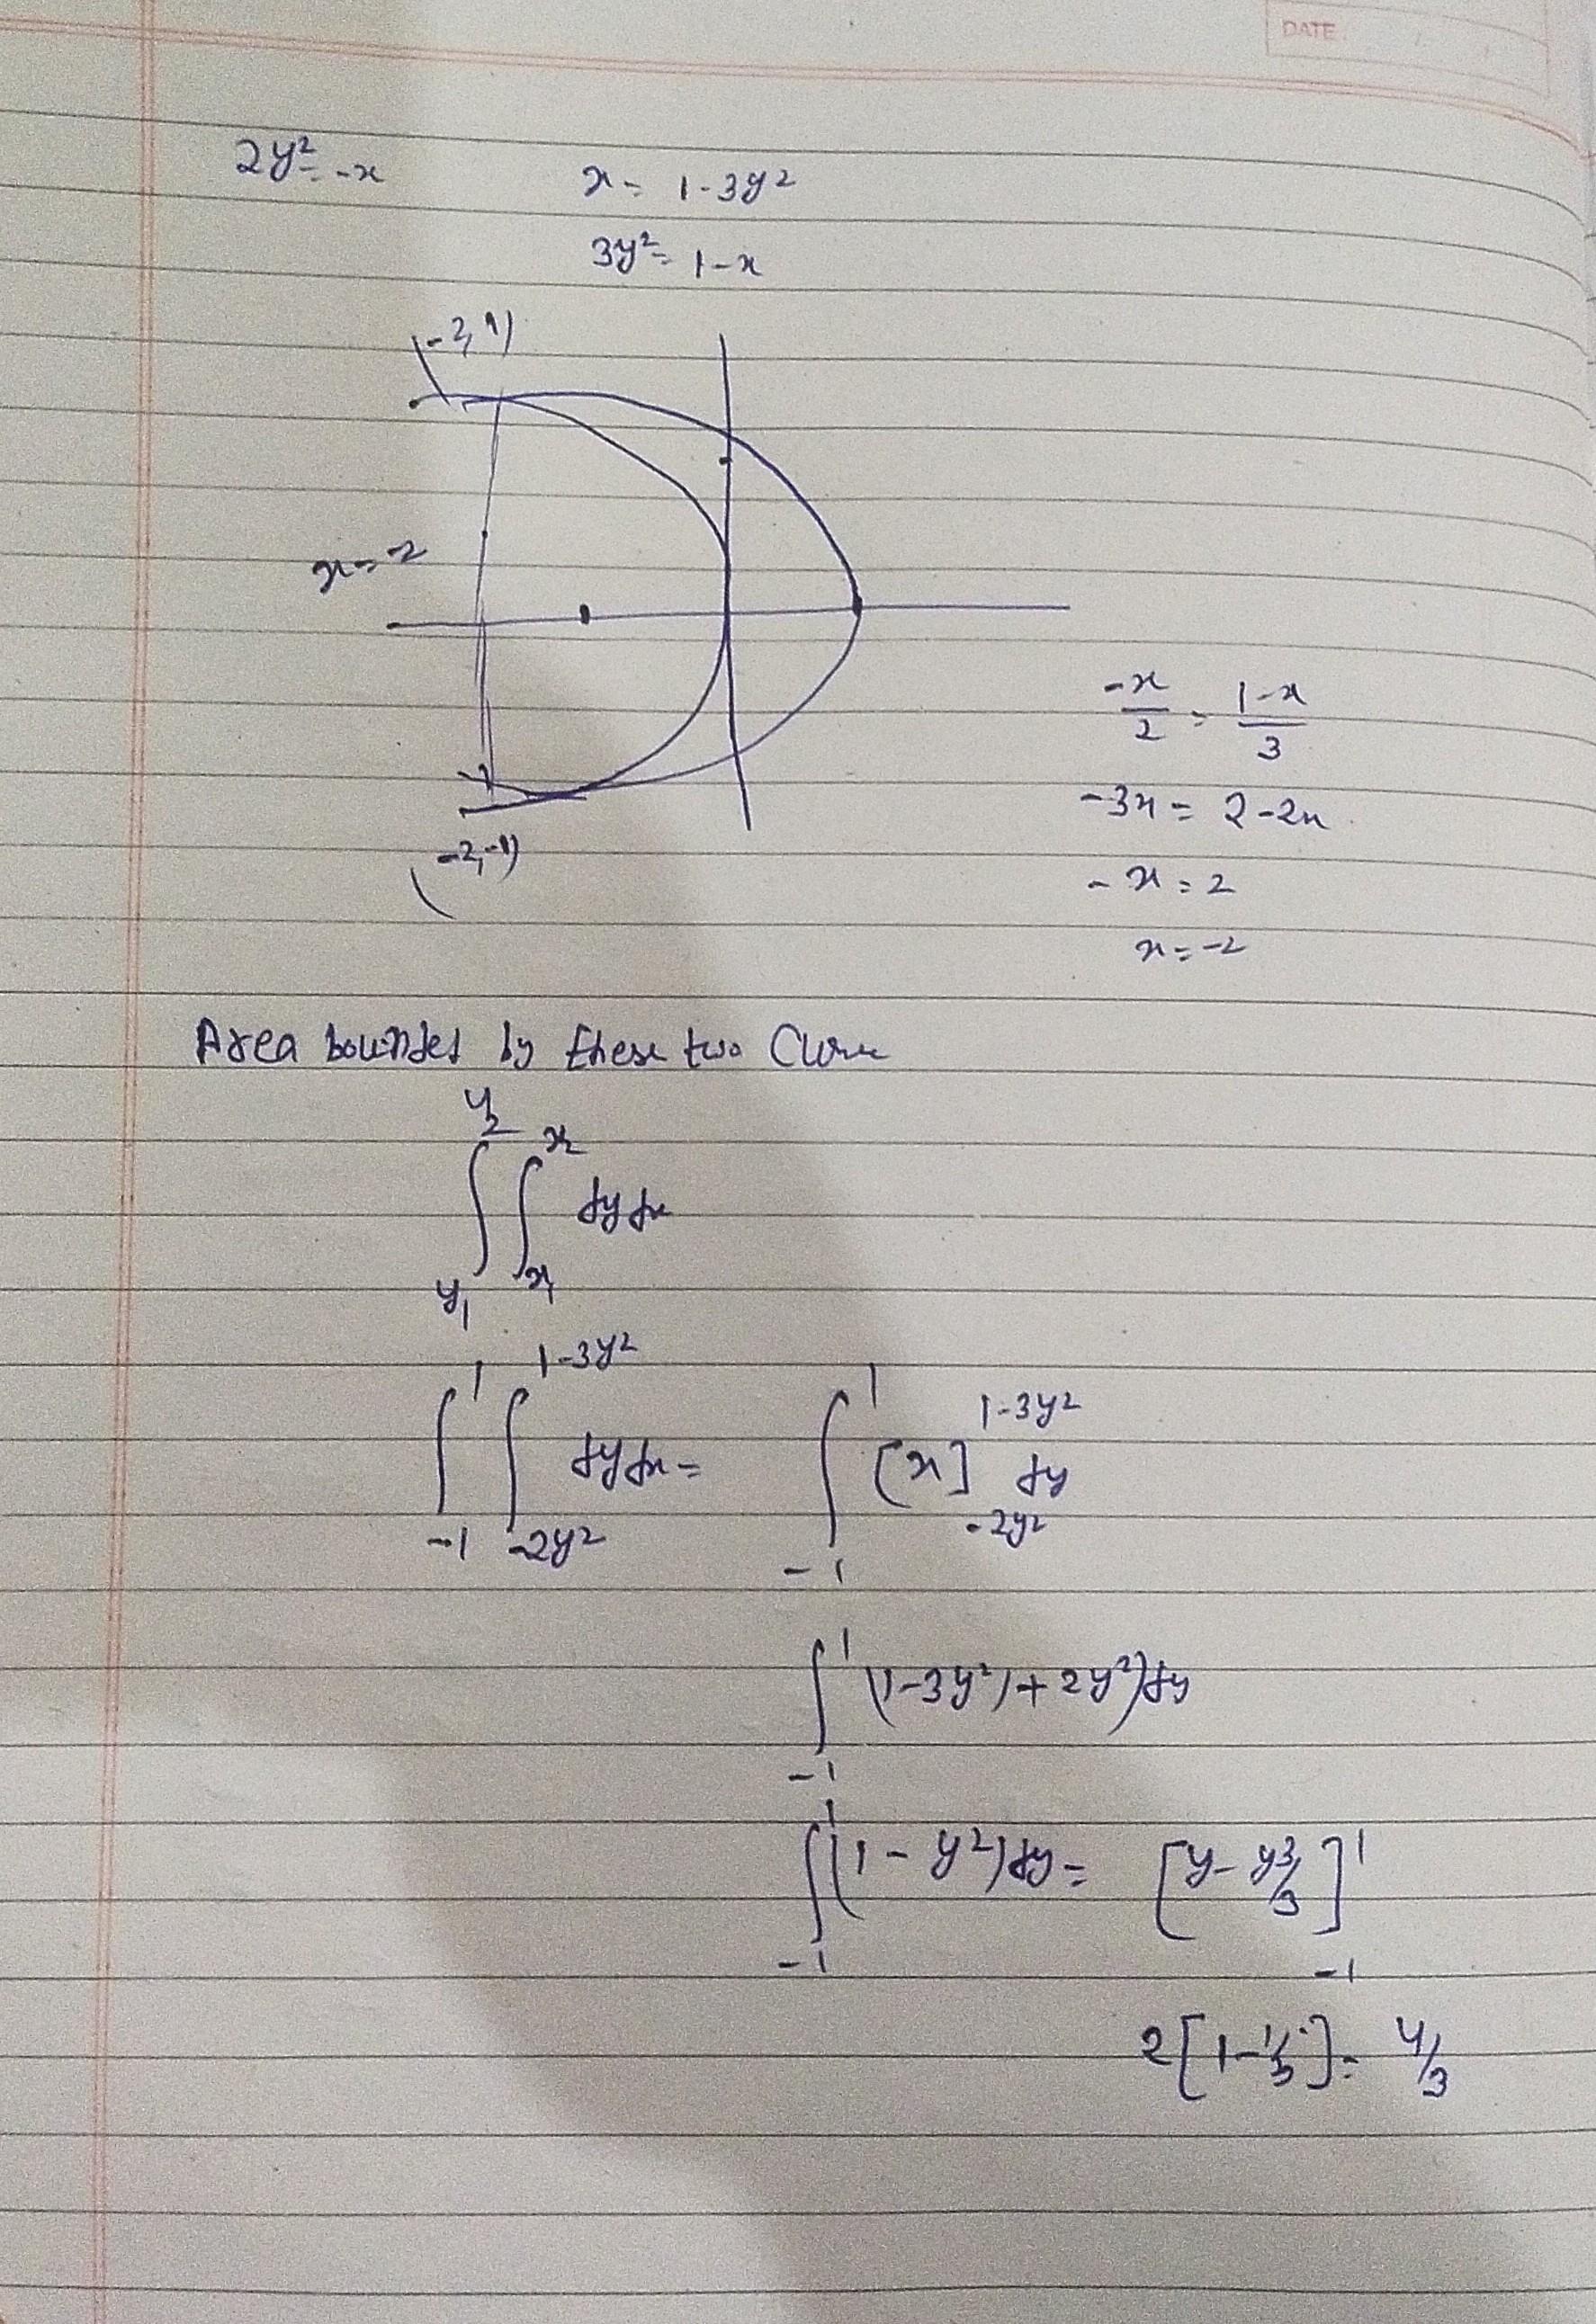 DATE:
2y² = -x
x = 1-3y²
3y² = 1-x
(-2, 1)
x = -2
(-2, -1)
-x/2 = (1-x)/3
-3x = 2-2x
-x = 2
x = -2
Area bounded by these two Curve
∫_{y₁}^{y₂} ∫_{x₁}^{x₂} dy dx
∫_{-1}^{1} ∫_{-2y²}^{1-3y²} dy dx = ∫_{-1}^{1} [x]_{-2y²}^{1-3y²} dy
∫_{-1}^{1} (1-3y²)+2y²) dy
∫_{-1}^{1} (1-y²) dy = [y - y³/3]_{-1}^{1}
2[1-1/3] = 4/3